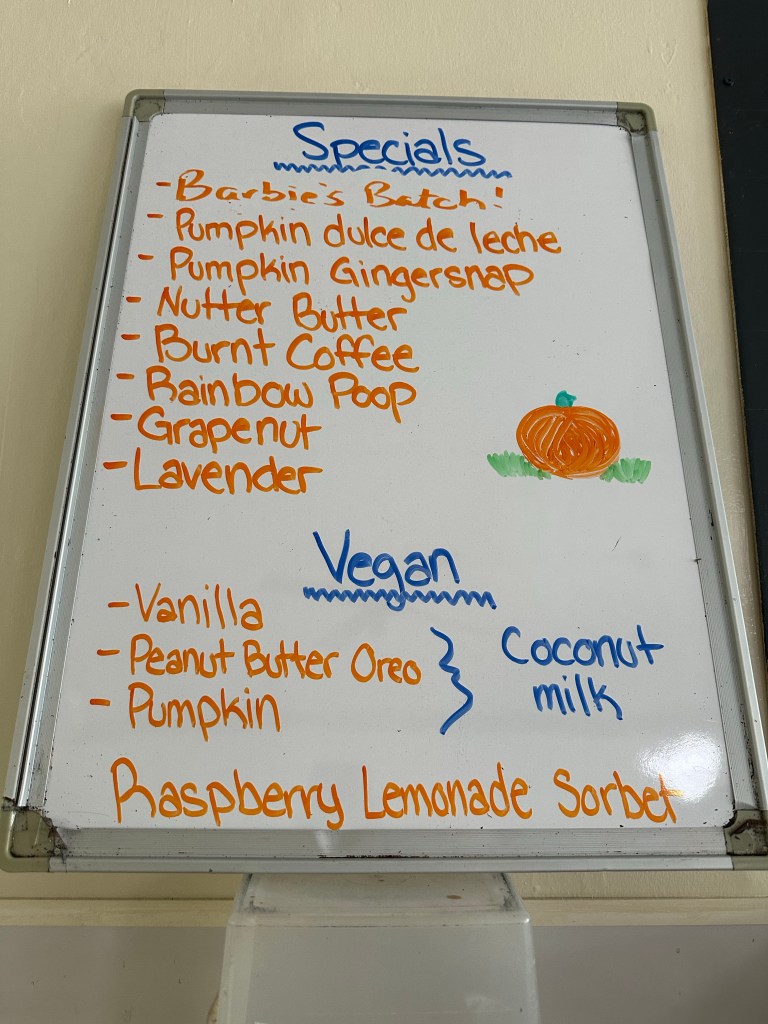 Specials
- Barbie's Batch!
- Pumpkin dulce de leche
- Pumpkin Gingersnap
- Nutter Butter
- Burnt Coffee
- Rainbow Poop
- Grapenut
- Lavender
Vegan
- Vanilla
- Peanut Butter Oreo
- Pumpkin
Coconut
milk
Raspberry Lemonade Sorbet